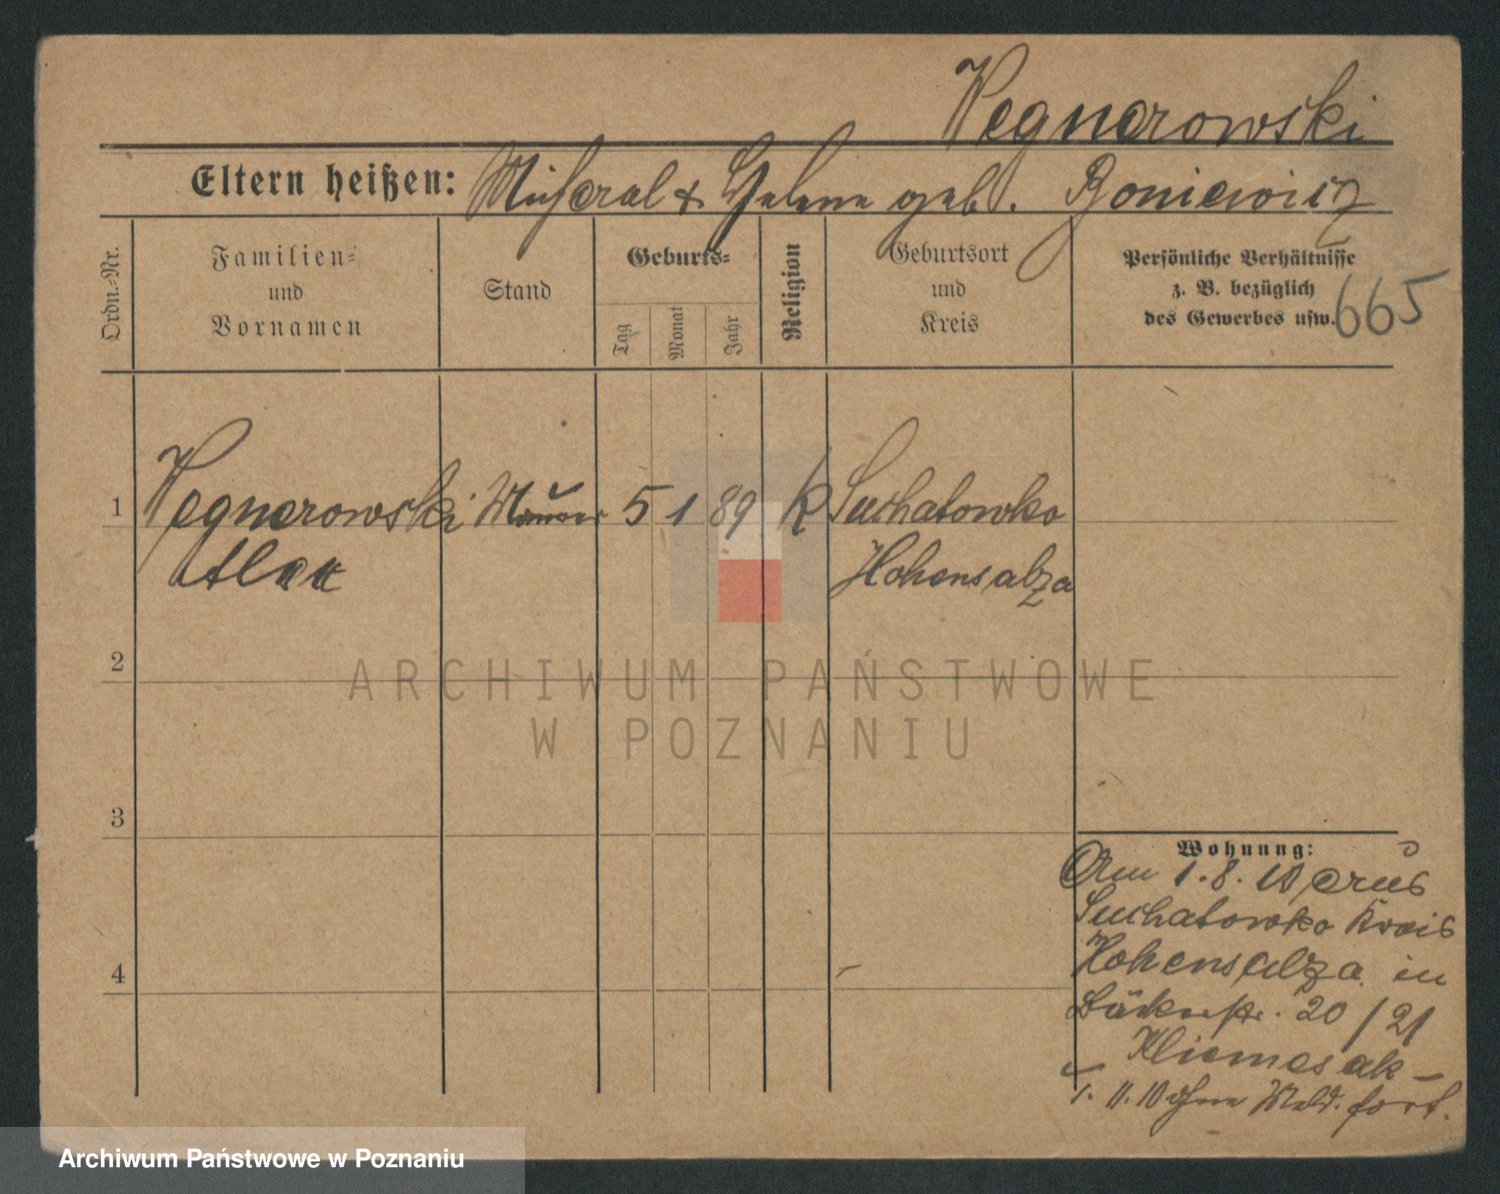 Wegnerowski
Eltern heißen: Michael & Helene geb. Boniewicz
Ordn.-Nr.
Familien-
und
Vornamen
Stand
Geburts-
Tag
Monat
Jahr
Religion
Geburtsort
und
Kreis
Persönliche Verhältnisse
z. B. bezüglich
des Gewerbes usw.
665
1 Wegnerowski Maurer 5 1 89 K Suchatowko
Alex Hohensalza
2
3
4
Wohnung:
Am 1. 8. 10 aus
Suchatowko Kreis
Hohensalza in
Bäckerstr. 20/21
1. 11. 10 ohne Meld. fort.
ARCHIWUM PAŃSTWOWE
W POZNANIU
Archiwum Państwowe w Poznaniu